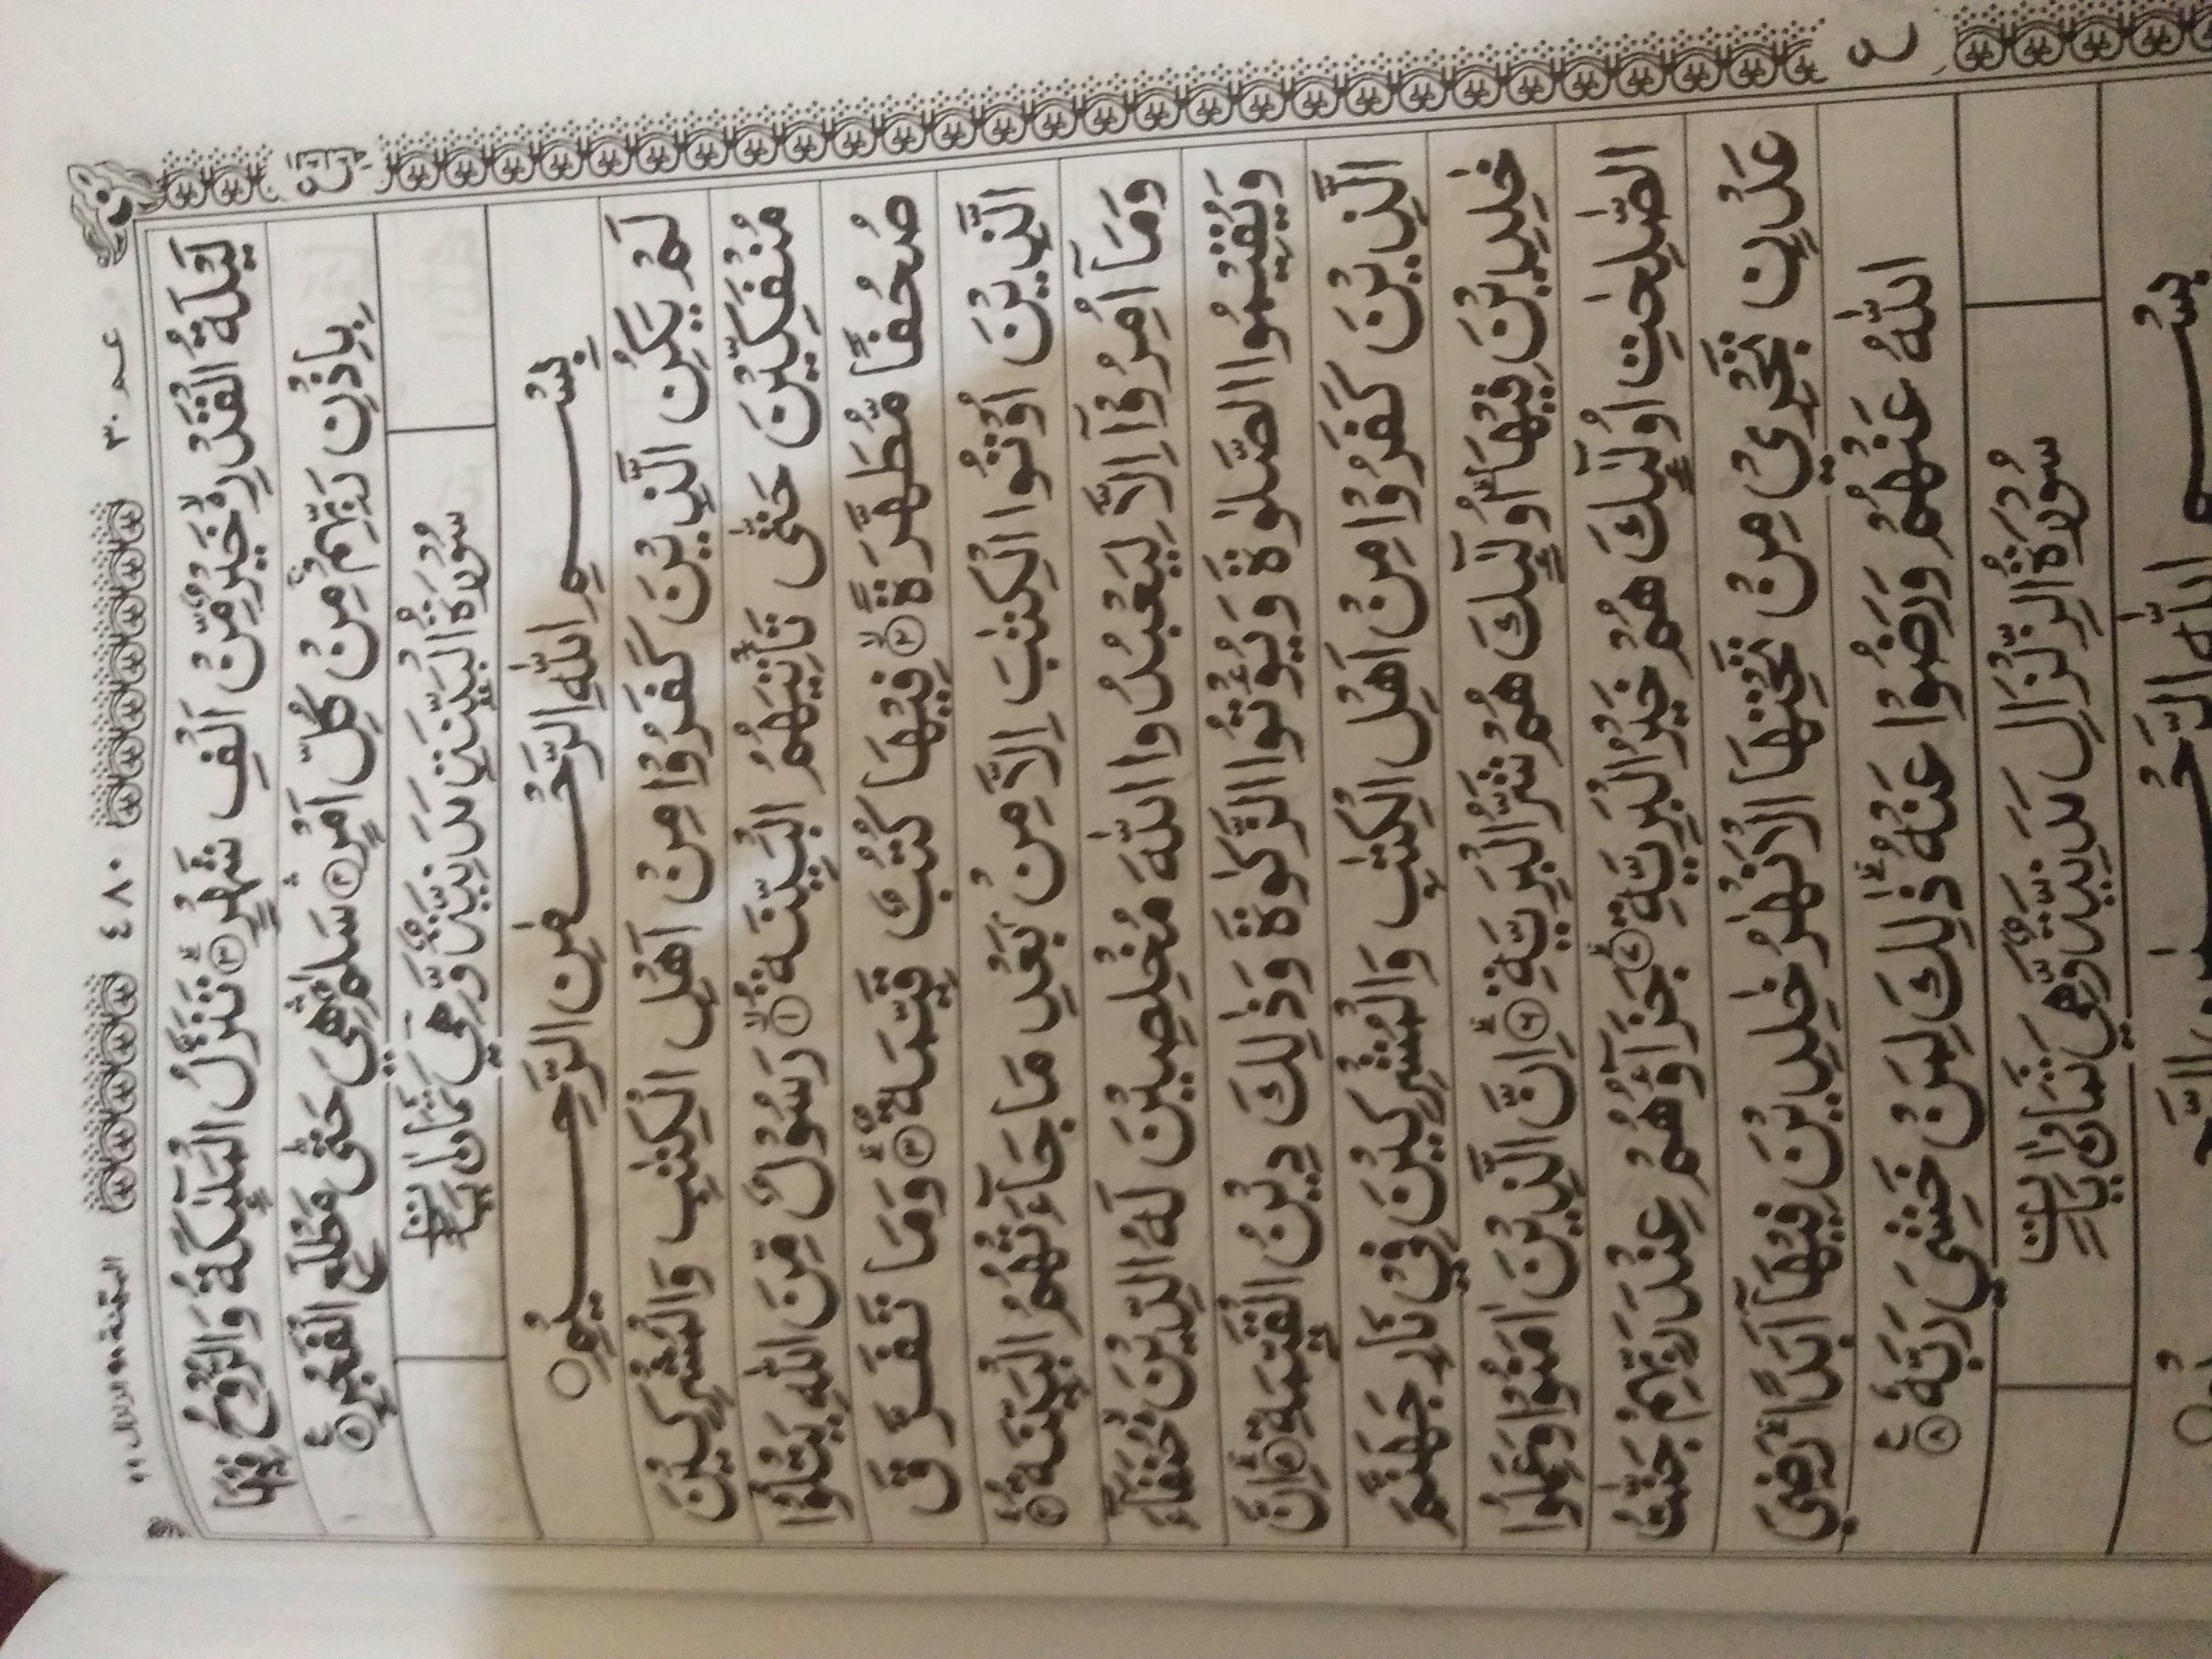 البيّنة ٩٨ الزلزال ٩٩ ٤٨٠ عـم ٣٠
لَيْلَةُ الْقَدْرِ ۙ خَيْرٌ مِّنْ اَلْفِ شَهْرٍ ﴿٣﴾ؕ تَنَزَّلُ الْمَلٰٓئِكَةُ وَالرُّوْحُ فِيْهَا
بِاِذْنِ رَبِّهِمْ ۚ مِنْ كُلِّ اَمْرٍ ﴿٤﴾ۛ سَلٰمٌ ۛ هِيَ حَتّٰى مَطْلَعِ الْفَجْرِ ﴿٥﴾ ع
سُوْرَةُ الْبَيِّنَةِ مَدَنِيَّةٌ وَّهِيَ ثَمَانِ اٰيَاتٍ
بِسْمِ اللّٰهِ الرَّحْمٰنِ الرَّحِيْمِ ○
لَمْ يَكُنِ الَّذِيْنَ كَفَرُوْا مِنْ اَهْلِ الْكِتٰبِ وَالْمُشْرِكِيْنَ
مُنْفَكِّيْنَ حَتّٰى تَاْتِيَهُمُ الْبَيِّنَةُ ﴿١﴾ۙ رَسُوْلٌ مِّنَ اللّٰهِ يَتْلُوْا
صُحُفًا مُّطَهَّرَةً ﴿٢﴾ۙ فِيْهَا كُتُبٌ قَيِّمَةٌ ﴿٣﴾ؕ وَمَا تَفَرَّقَ
الَّذِيْنَ اُوْتُوا الْكِتٰبَ اِلَّا مِنْۢ بَعْدِ مَا جَآءَتْهُمُ الْبَيِّنَةُ ﴿٤﴾ؕ
وَمَآ اُمِرُوْٓا اِلَّا لِيَعْبُدُوا اللّٰهَ مُخْلِصِيْنَ لَهُ الدِّيْنَ ۙ حُنَفَآءَ
وَيُقِيْمُوا الصَّلٰوةَ وَيُؤْتُوا الزَّكٰوةَ وَذٰلِكَ دِيْنُ الْقَيِّمَةِ ﴿٥﴾ؕ اِنَّ
الَّذِيْنَ كَفَرُوْا مِنْ اَهْلِ الْكِتٰبِ وَالْمُشْرِكِيْنَ فِيْ نَارِ جَهَنَّمَ
خٰلِدِيْنَ فِيْهَا ؕ اُولٰٓئِكَ هُمْ شَرُّ الْبَرِيَّةِ ﴿٦﴾ؕ اِنَّ الَّذِيْنَ اٰمَنُوْا وَعَمِلُوا
الصّٰلِحٰتِ اُولٰٓئِكَ هُمْ خَيْرُ الْبَرِيَّةِ ﴿٧﴾ؕ جَزَآؤُهُمْ عِنْدَ رَبِّهِمْ جَنّٰتُ
عَدْنٍ تَجْرِيْ مِنْ تَحْتِهَا الْاَنْهٰرُ خٰلِدِيْنَ فِيْهَآ اَبَدًا ؕ رَضِيَ
اللّٰهُ عَنْهُمْ وَرَضُوْا عَنْهُ ؕ ذٰلِكَ لِمَنْ خَشِيَ رَبَّهٗ ﴿٨﴾ ع
سُوْرَةُ الزِّلْزَالِ مَدَنِيَّةٌ وَّهِيَ ثَمَانِ اٰيَاتٍ
بِسْمِ اللّٰهِ الرَّحْمٰنِ الرَّحِيْمِ ○